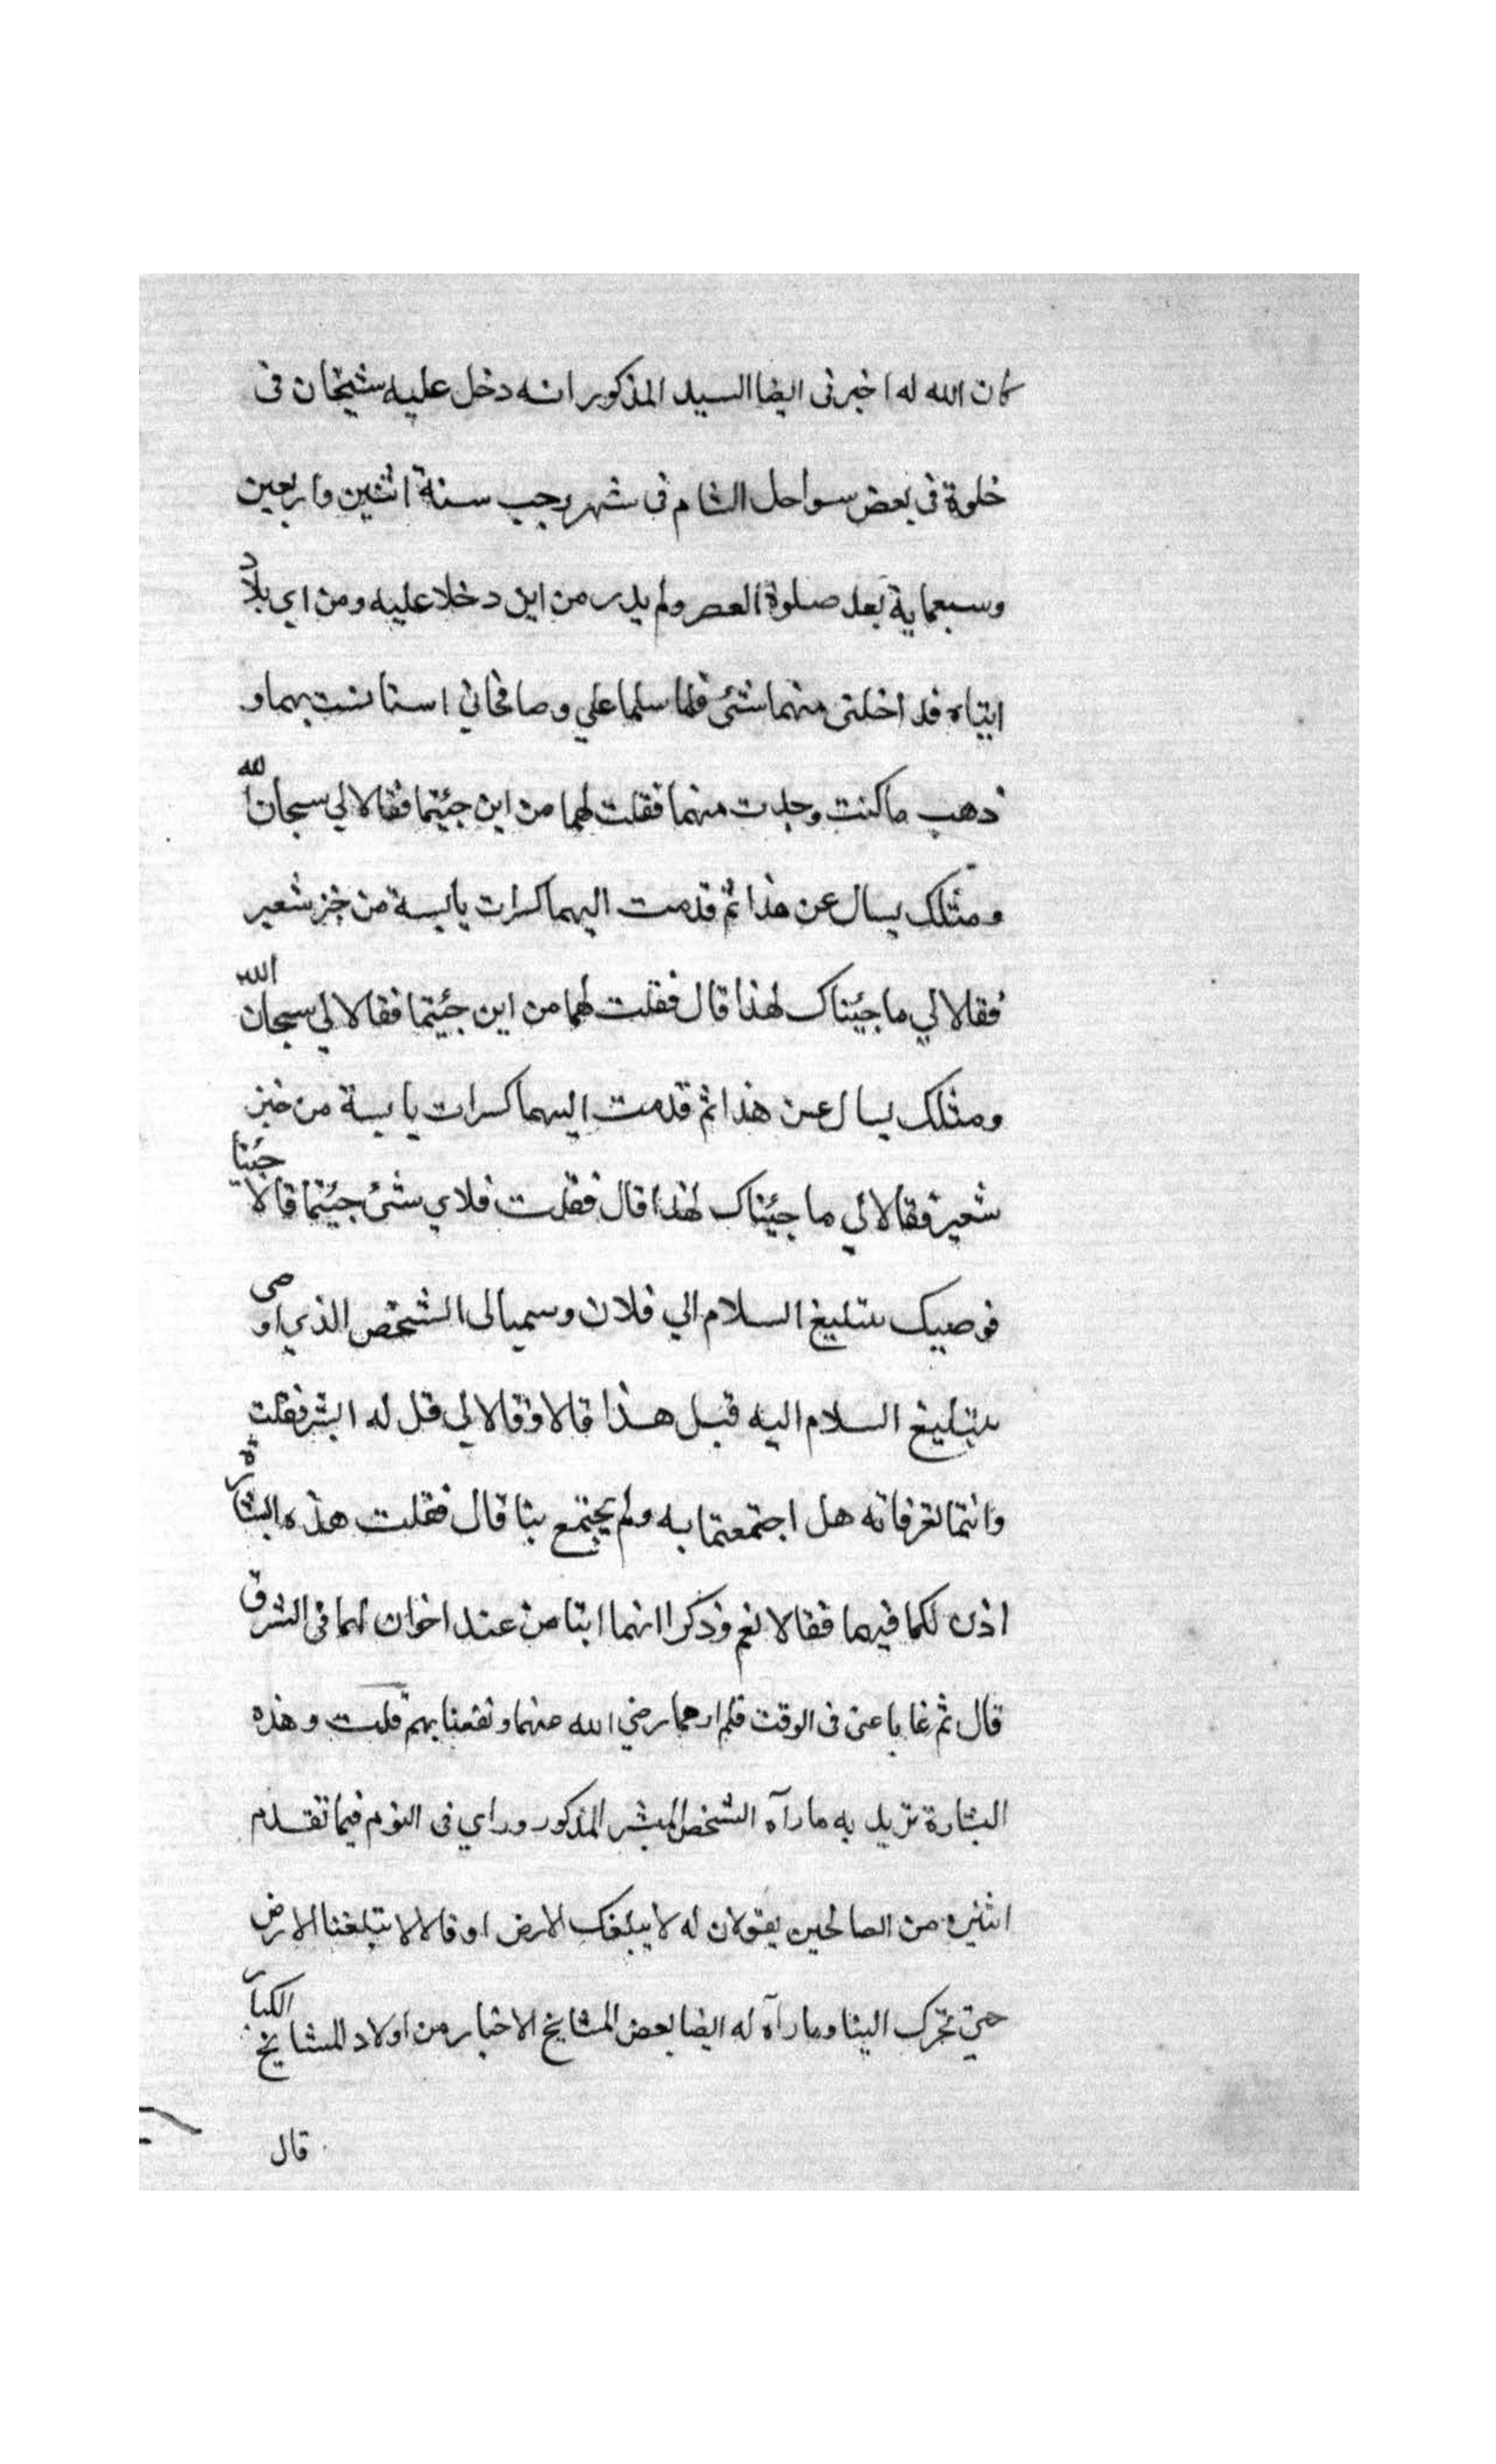 كان الله له اخبرنى ايضا السيد المذكور انه دخل عليه شيخان فى
خلوة فى بعض سواحل الشام فى شهر رجب سنة اثنين واربعين
وسبعماية بعد صلوة العصر ولم يدر من اين دخلا عليه ومن اي بلاد
اتياه فداخلتى منهما شئ فلما سلما علي وصافحاني استانست بهما و
ذهب ما كنت وجدت منهما فقلت لهما من اين جئتما فقالا لي سبحان الله
ومثلك يسال عن هذا ثم قدمت اليهما كسرات يابسة من خبز شعير
فقالا لي ما جئناك لهذا قال فقلت لهما من اين جئتما فقالا لي سبحان الله
ومثلك يسال عن هذا ثم قدمت اليهما كسرات يابسة من خبز
شعير فقالا لي ما جئناك لهذا قال فقلت فلاي شئ جئتما قالا جئنا
نوصيك بتبليغ السلام الي فلان وسميا لى الشخص الذي اوصى
بتبليغ السلام اليه قبل هذا قالا وقالا لي قل له ابشر فقلت
وانتما تعرفانه هل اجتمعتما به ولم يجتمع بنا قال فقلت هذه البشارة
اذن لكما فيها فقالا نعم وذكرا انهما اتيا من عند اخوان لهما فى الشرق
قال ثم غابا عنى فى الوقت فلم ارهما رضي الله عنهما ونفعنا بهم قلت وهذه
البشارة تزيد به ما رآه الشخص المبشر المذكور وراي فى النوم فيما تقدم
اثنين من الصالحين يقولان له لا يبلغك الارض او قالا لا تبلغنا الارض
حتي تحرك الينا وما رآه له ايضا بعض المشايخ الاخيار من اولاد المشايخ الكبار
قال